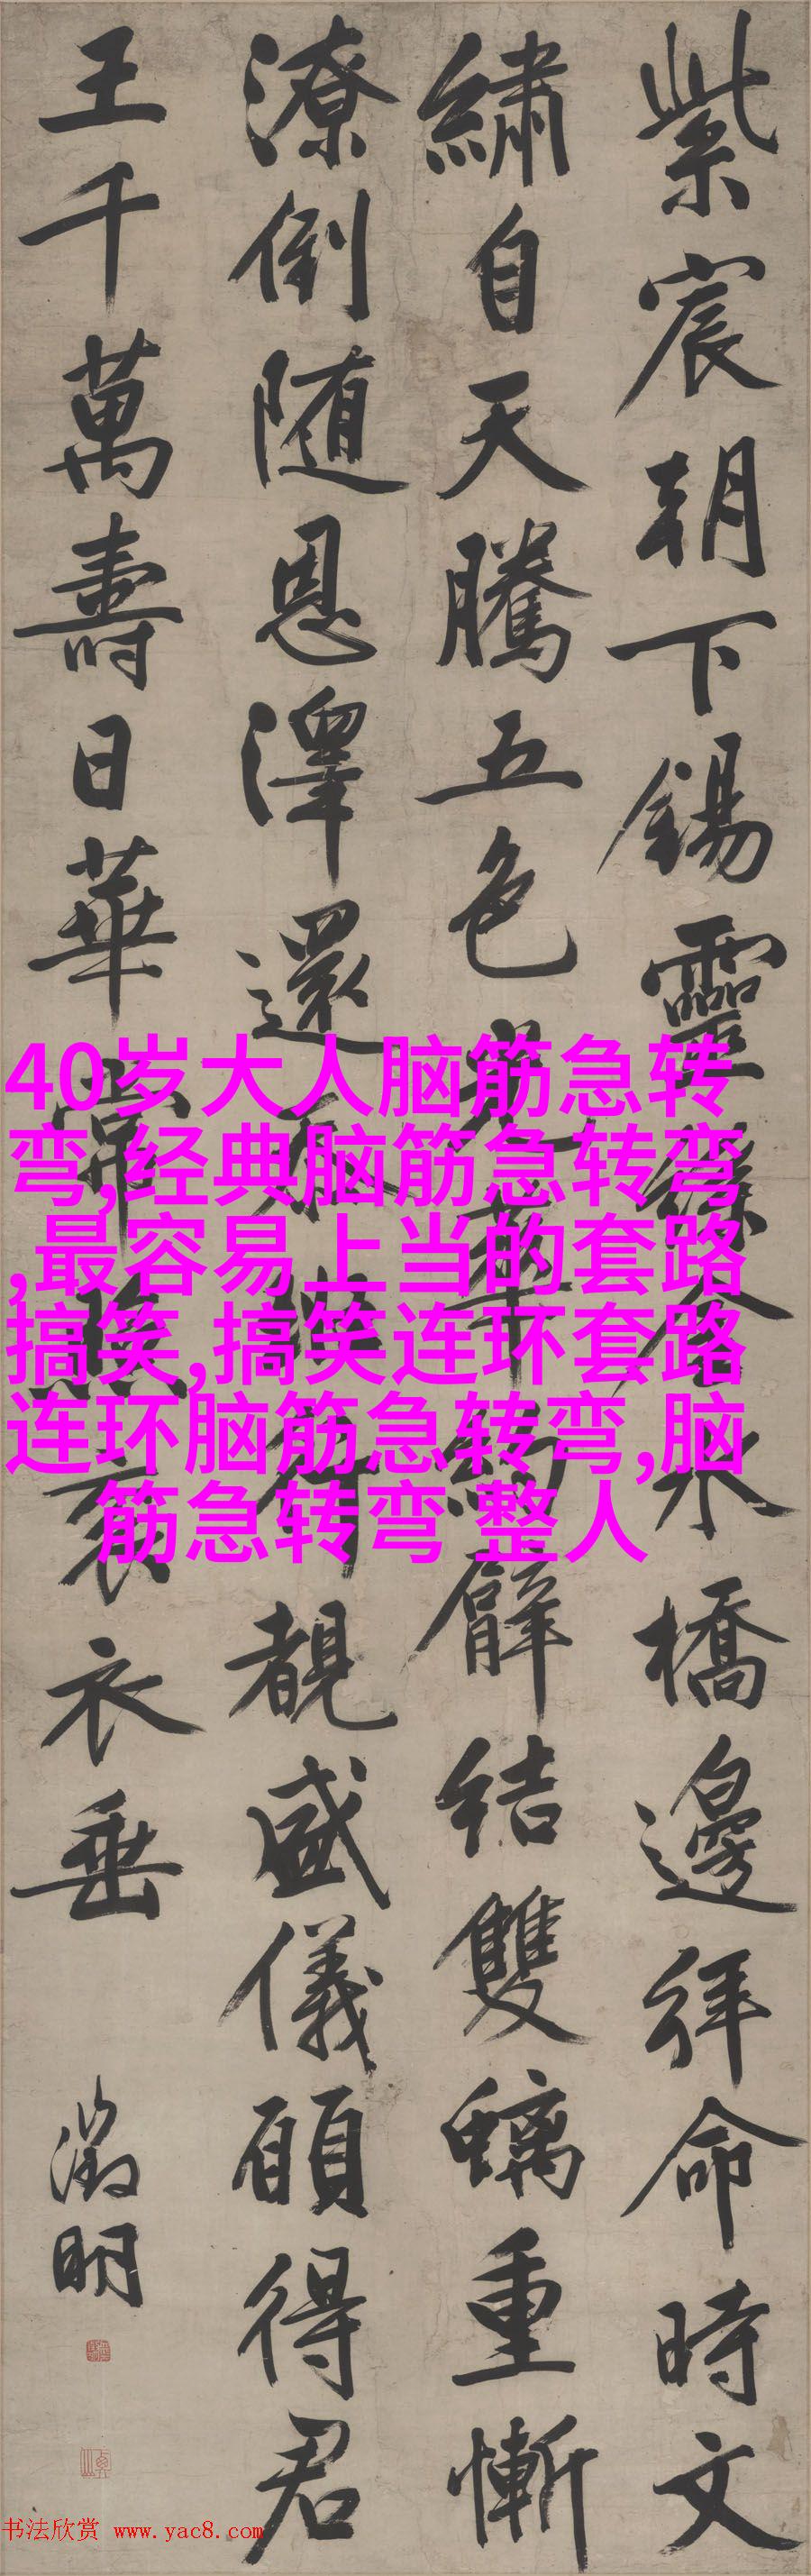 紫宸朝下錫靈絲金水橋邊拜命時文
繡自天騰五色光華約臂結雙螭重慚
潦倒随恩澤還覩盛儀願得君
王千萬壽日華常照袞衣垂
徵明
40岁大人脑筋急转
弯,经典脑筋急转弯
,最容易上当的套路
搞笑,搞笑连环套路
连环脑筋急转弯,脑
筋急转弯 整人
书法欣赏 www.yac8.com